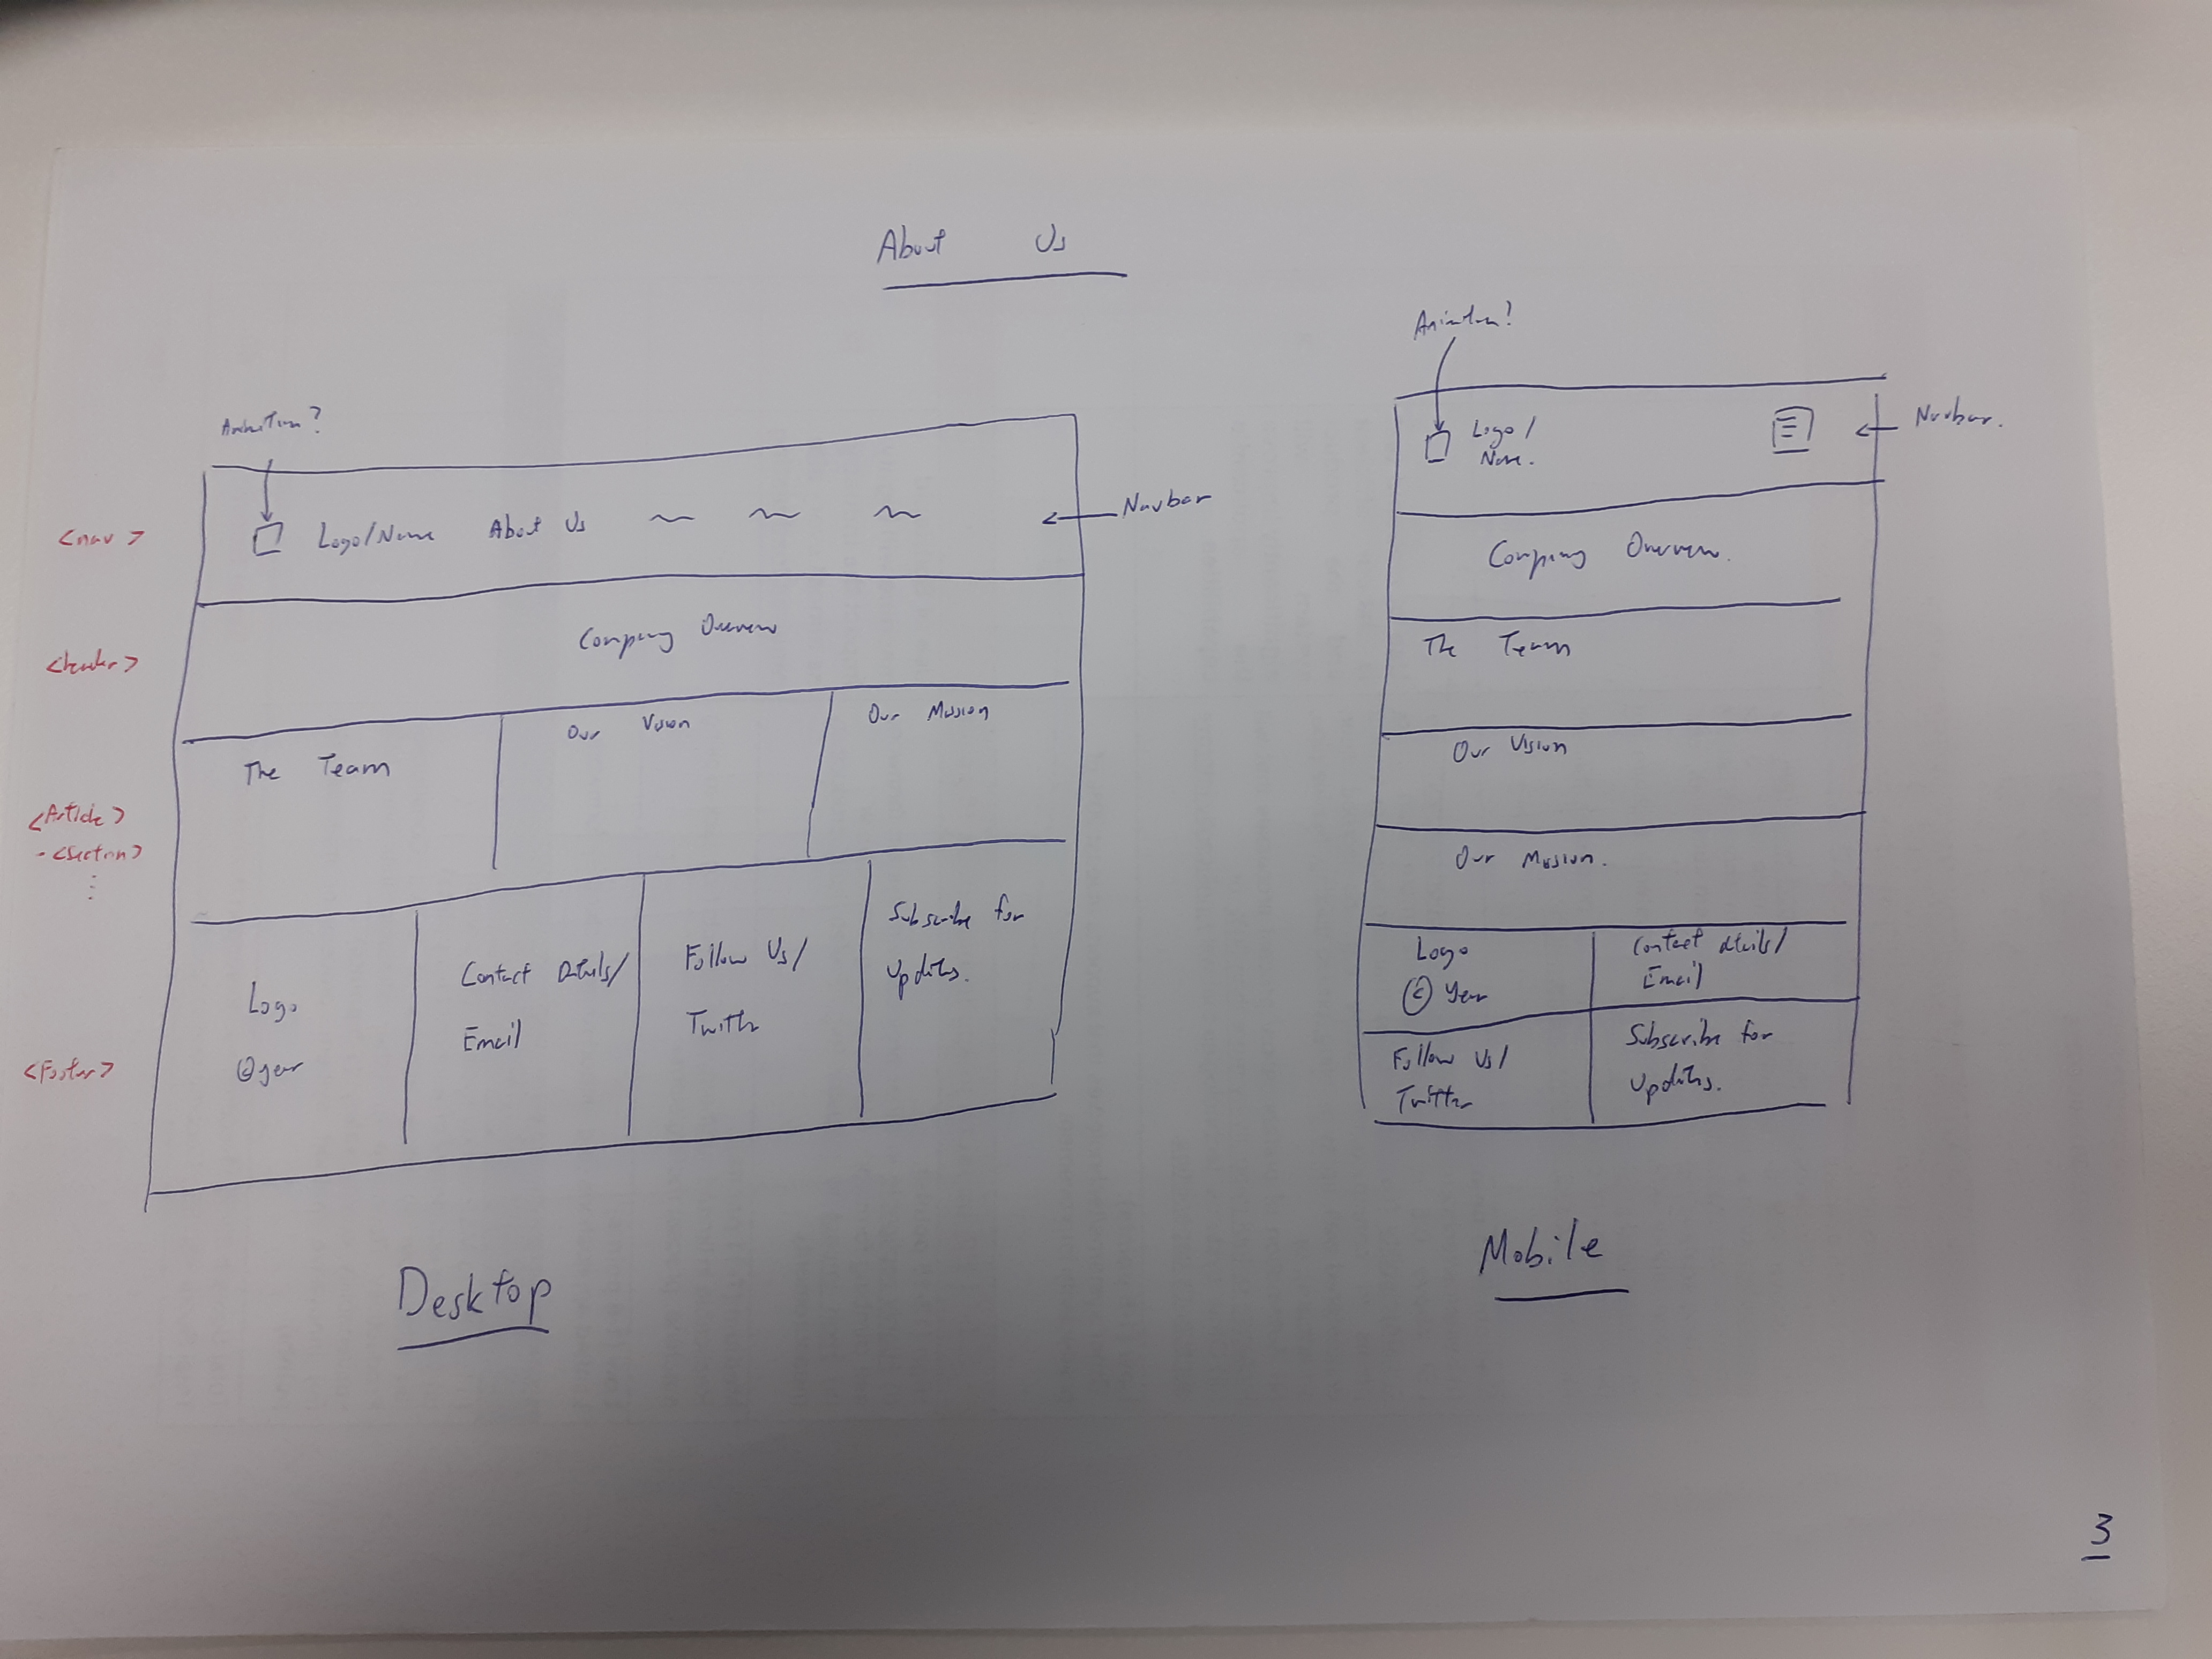 About Us
Animation?
<nav>
Logo/Name About Us
Navbar
<header>
Company Overview
The Team
Our Vision
Our Mission
<Article>
- <Section>
<Footer>
Logo
© year
Contact Details/
Email
Follow Us/
Twitter
Subscribe for
updates.
Desktop
Animation?
Logo/
Name.
Navbar.
Company Overview.
The Team
Our Vision
Our Mission.
Logo
© year
Contact details/
Email
Follow Us/
Twitter
Subscribe for
updates.
Mobile
3